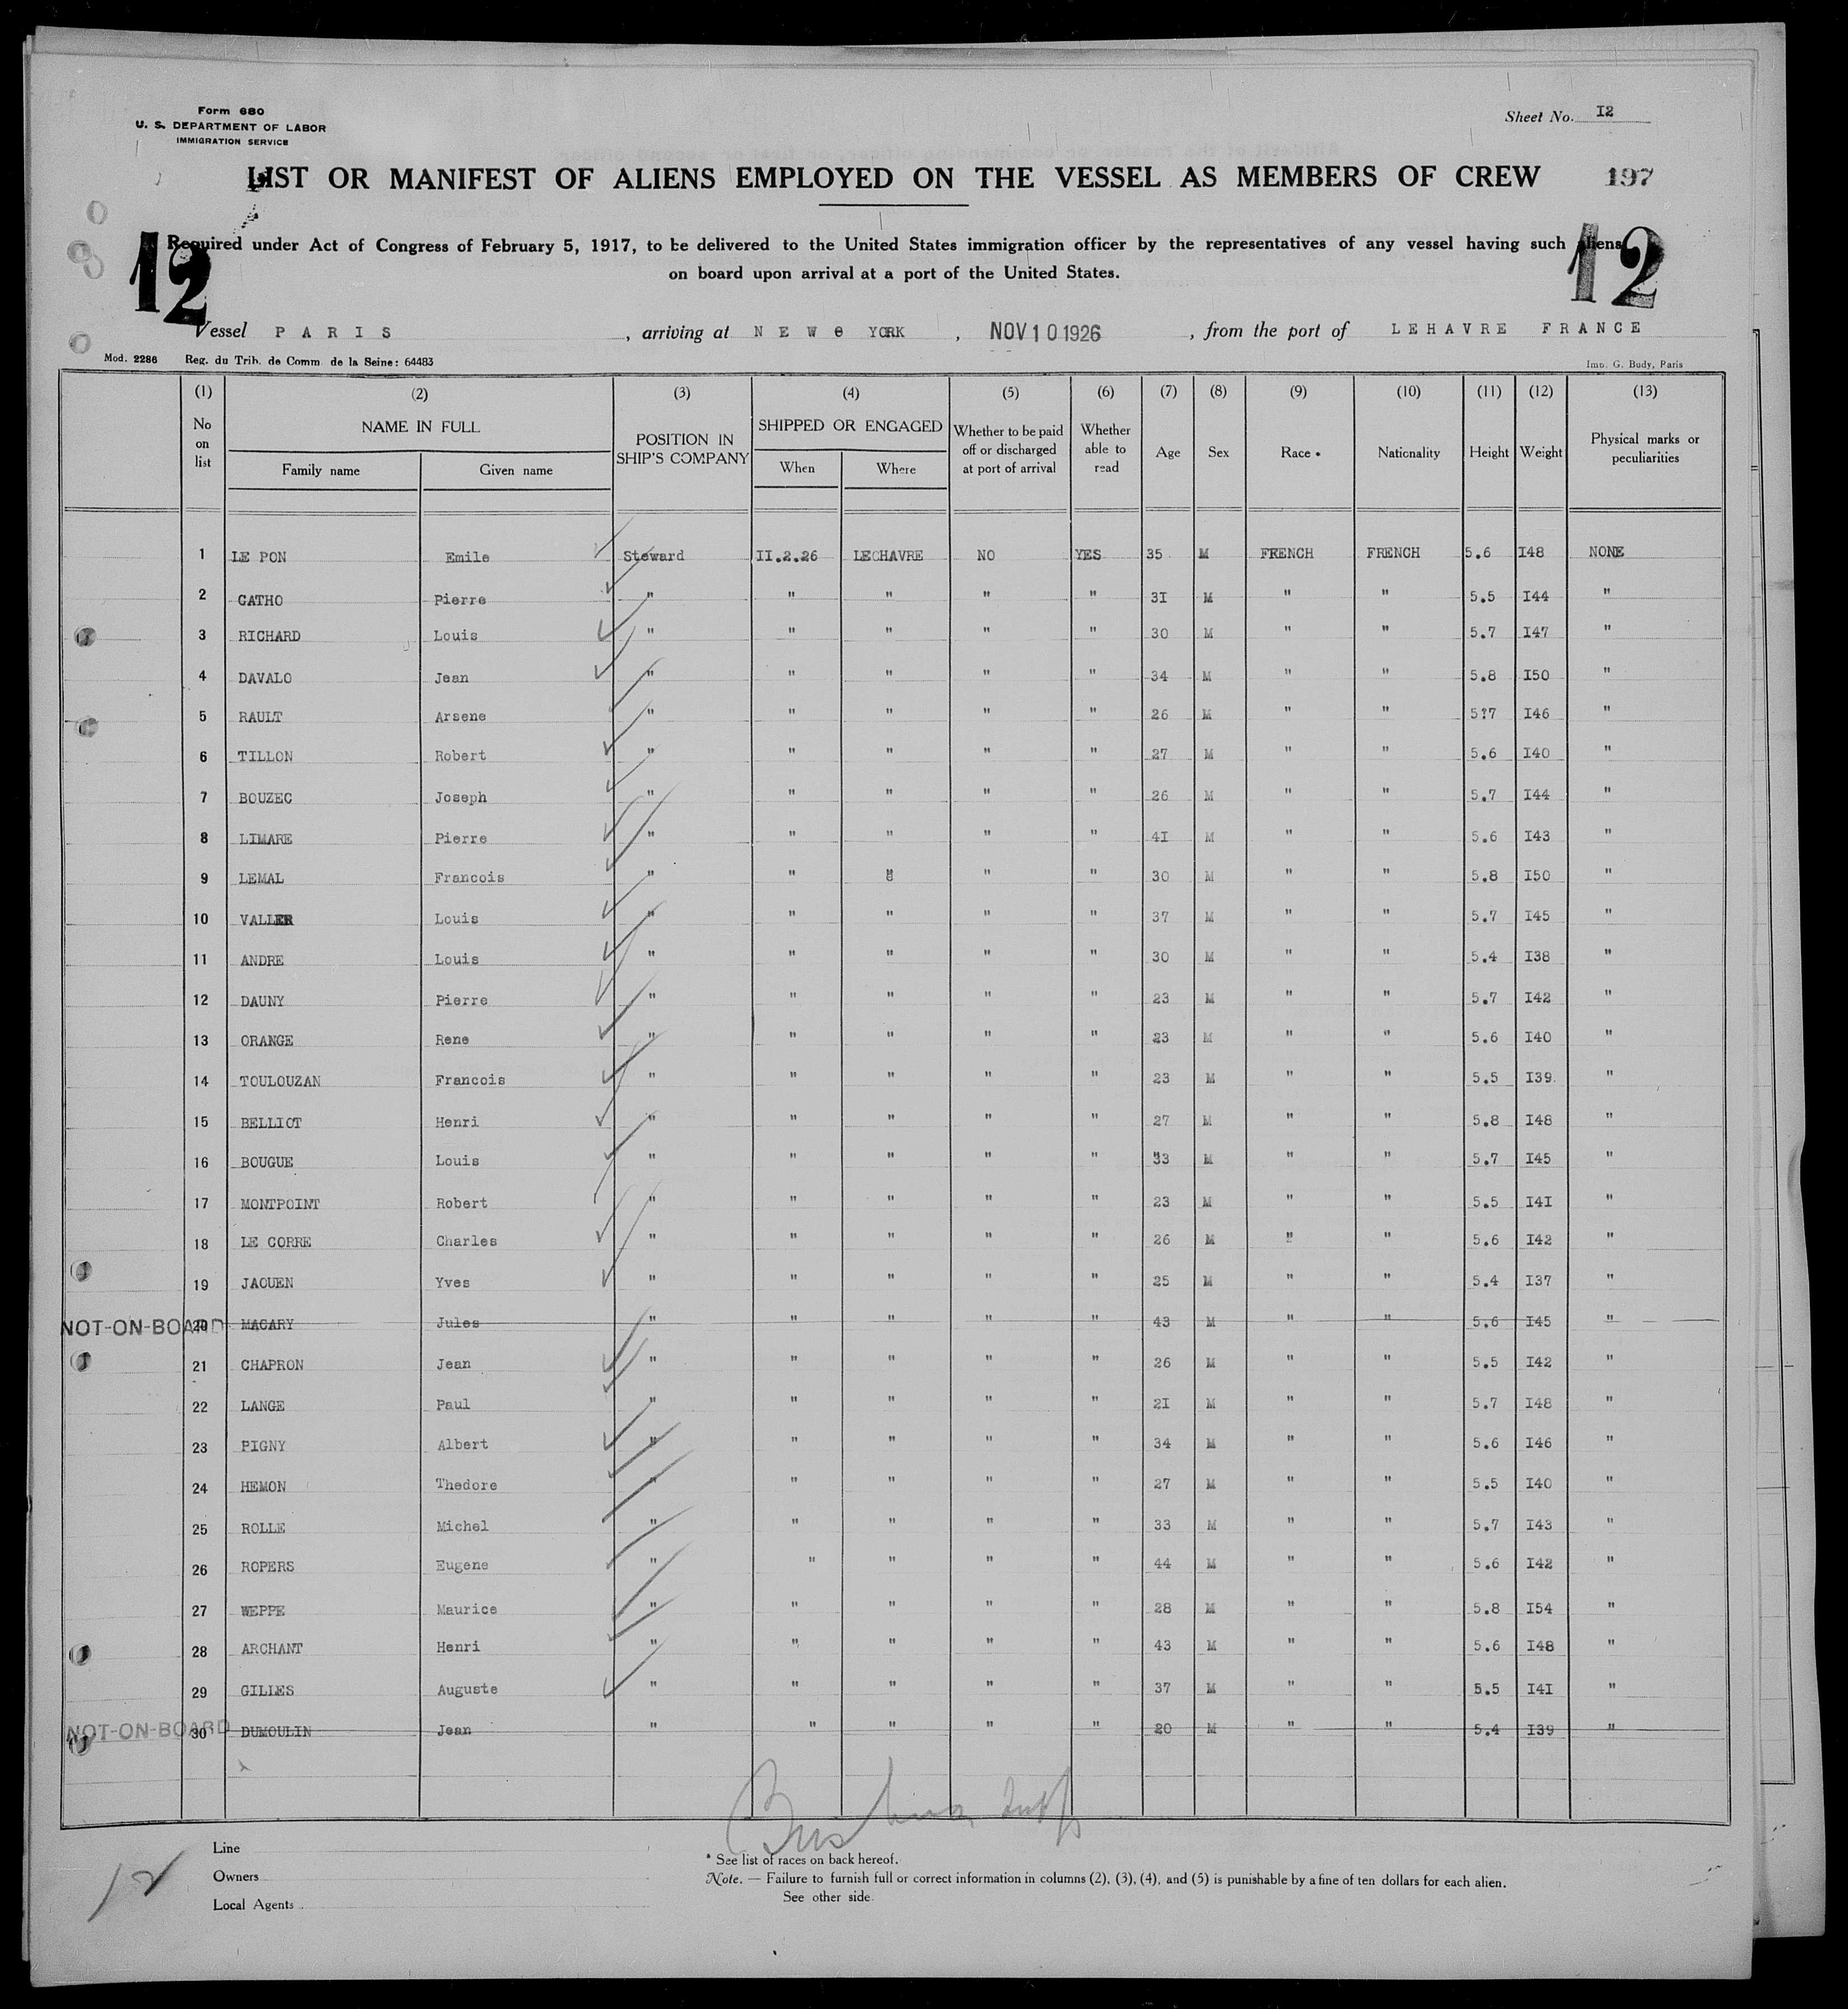 Form 680
U. S. DEPARTMENT OF LABOR
IMMIGRATION SERVICE
Sheet No. I2
LIST OR MANIFEST OF ALIENS EMPLOYED ON THE VESSEL AS MEMBERS OF CREW 197
12 12
Required under Act of Congress of February 5, 1917, to be delivered to the United States immigration officer by the representatives of any vessel having such aliens
on board upon arrival at a port of the United States.
Vessel PARIS, arriving at NEW YORK, NOV 10 1926, from the port of LEHAVRE FRANCE
Mod. 2286 Reg. du Trib. de Comm. de la Seine: 64483 Imp. G. Budy, Paris
(1) (2) (3) (4) (5) (6) (7) (8) (9) (10) (11) (12) (13)
No on list NAME IN FULL Family name Given name POSITION IN SHIP'S COMPANY SHIPPED OR ENGAGED When Where Whether to be paid off or discharged at port of arrival Whether able to read Age Sex Race * Nationality Height Weight Physical marks or peculiarities
1 LE PON Emile Steward II.2.26 LECHAVRE NO YES 35 M FRENCH FRENCH 5.6 I48 NONE
2 CATHO Pierre " " " " " 3I M " " 5.5 I44 "
3 RICHARD Louis " " " " " 30 M " " 5.7 I47 "
4 DAVALO Jean " " " " " 34 M " " 5.8 I50 "
5 RAULT Arsene " " " " " 26 M " " 5?7 I46 "
6 TILLON Robert " " " " " 27 M " " 5.6 I40 "
7 BOUZEC Joseph " " " " " 26 M " " 5.7 I44 "
8 LIMARE Pierre " " " " " 4I M " " 5.6 I43 "
9 LEMAL Francois " " " " " 30 M " " 5.8 I50 "
10 VALLER Louis " " " " " 37 M " " 5.7 I45 "
11 ANDRE Louis " " " " " 30 M " " 5.4 I38 "
12 DAUNY Pierre " " " " " 23 M " " 5.7 I42 "
13 ORANGE Rene " " " " " 23 M " " 5.6 I40 "
14 TOULOUZAN Francois " " " " " 23 M " " 5.5 I39. "
15 BELLIOT Henri " " " " " 27 M " " 5.8 I48 "
16 BOUGUE Louis " " " " " 33 M " " 5.7 I45 "
17 MONTPOINT Robert " " " " " 23 M " " 5.5 I4I "
18 LE CORRE Charles " " " " " 26 M " " 5.6 I42 "
19 JAOUEN Yves " " " " " 25 M " " 5.4 I37 "
NOT-ON-BOARD 20 MACARY Jules " " " " " 43 M " " 5.6 I45 "
21 CHAPRON Jean " " " " " 26 M " " 5.5 I42 "
22 LANGE Paul " " " " " 2I M " " 5.7 I48 "
23 PIGNY Albert " " " " " 34 M " " 5.6 I46 "
24 HEMON Thedore " " " " " 27 M " " 5.5 I40 "
25 ROLLE Michel " " " " " 33 M " " 5.7 I43 "
26 ROPERS Eugene " " " " " 44 M " " 5.6 I42 "
27 WEPPE Maurice " " " " " 28 M " " 5.8 I54 "
28 ARCHANT Henri " " " " " 43 M " " 5.6 I48 "
29 GILLES Auguste " " " " " 37 M " " 5.5 I4I "
NOT-ON-BOARD 30 DUMOULIN Jean " " " " " 20 M " " 5.4 I39 "
Line
Owners
Local Agents
12
* See list of races on back hereof.
Note. — Failure to furnish full or correct information in columns (2), (3), (4), and (5) is punishable by a fine of ten dollars for each alien.
See other side.